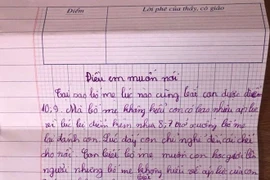 Điểm
Lời phê của thầy, cô giáo
Điều em muốn nói
Tại sao bố mẹ lúc nào cũng bắt con được điểm
10, 9. Mà bố mẹ không hiểu con có bao nhiêu áp lực
về lúc bị điểm kém như 8, 7 trở xuống bố mẹ
lại đánh con. Lúc đấy con chỉ nghĩ đến cái chết
cho rồi. Con biết bố mẹ muốn con học giỏi lên
người nhưng bố mẹ không hiểu về áp lực của con